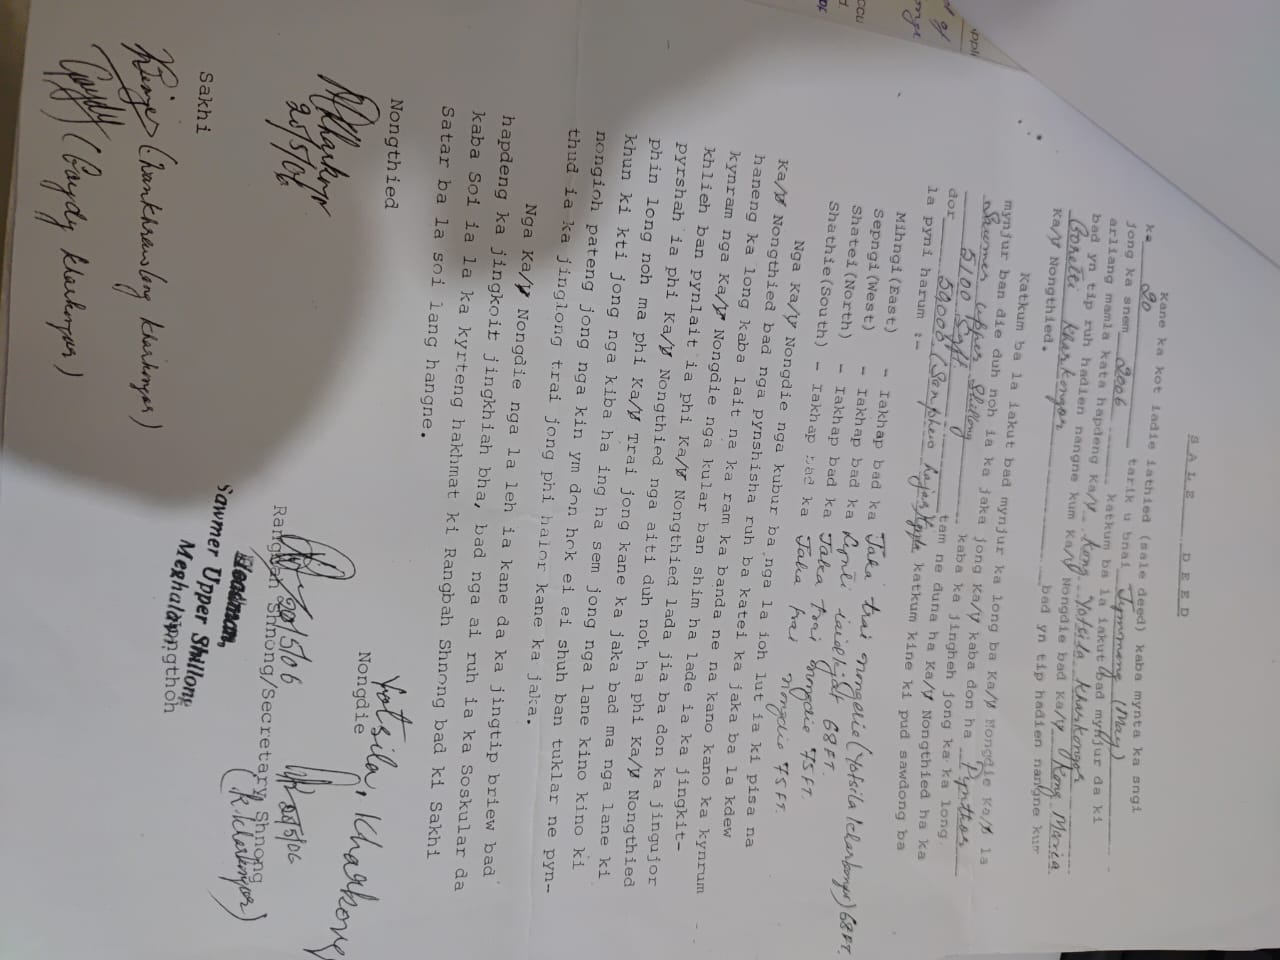 SALE DEED
Kane ka kot iadie iathied (sale deed) kaba mynta ka sngi
ka 20 jong ka snem 2006 tarik u bnai Jymmang (May)
arliang mamla kata hapdeng Ka/ Kong Yotsila Kharkongor
katkum ba la iakut bad mynjur da ki
bad yn tip ruh hadien nangne kum Ka/ Nongdie bad Ka/ Kong Maria
Goretti Kharkongor bad yn tip hadien nangne kum
Ka/ Nongthied.
Katkum ba la iakut bad mynjur ka long ba Ka/ Nongdie Ka/ la
mynjur ban die duh noh ia ka jaka jong Ka/ kaba don ha Pynthor
Sawmer Upper Shillong kaba ka jingheh jong ka ka long
5100 Sqft tam ne duna ha Ka/ Nongthied ha ka
dor 50,000/- (Sanphew hajar) katkum kine ki pud sawdong ba
la pyni harum :-
Mihngi(East) - Iakhap bad ka Jaka trai nongdie (Yotsila Kharkongor) 68 FT.
Sepngi(West) - Iakhap bad ka Lynti iaid kjat 68 FT.
Shatei(North) - Iakhap bad ka Jaka trai nongdie 75 FT.
Shathie(South) - Iakhap bad ka Jaka trai nongdie 75 FT.
Nga Ka/ Nongdie nga kubur ba nga la ioh lut ia ki pisa na
Ka/ Nongthied bad nga pynshisha ruh ba katei ka jaka ba la kdew
haneng ka long kaba lait na ka ram ka banda ne na kano kano ka kynrum
kynram nga Ka/ Nongdie nga kular ban shim ha lade ia ka jingkit-
khlieh ban pynlait ia phi Ka/ Nongthied lada jia ba don ka jingujor
pyrshah ia phi Ka/ Nongthied nga aiti duh noh ha phi Ka/ Nongthied
phin long noh ma phi Ka/ Trai jong kane ka jaka bad ma nga lane ki
khun ki kti jong nga kiba ha ing ha sem jong nga lane kino kino ki
nongioh pateng jong nga kin ym don hok ei ei shuh ban tuklar ne pyn-
thud ia ka jinglong trai jong phi halor kane ka jaka.
Nga Ka/ Nongdie nga la leh ia kane da ka jingtip briew bad
hapdeng ka jingkoit jingkhiah bha, bad nga ai ruh ia ka Soskular da
kaba Soi ia la ka kyrteng hakhmat ki Rangbah Shnong bad ki Sakhi
Satar ba la soi lang hangne.
Nongthied
MGKharkongor
20/5/06
Yotsila, Kharkong
Nongdie
Sakhi
(Wankhrawlang Kharkongor)
Goydy (Goydy Kharkongor)
20/5/06
20/5/06
(K. Kharkongor)
Rangbah Shnong/Secretary Shnong
Headman,
Sawmer Upper Shillong
Meghalaya